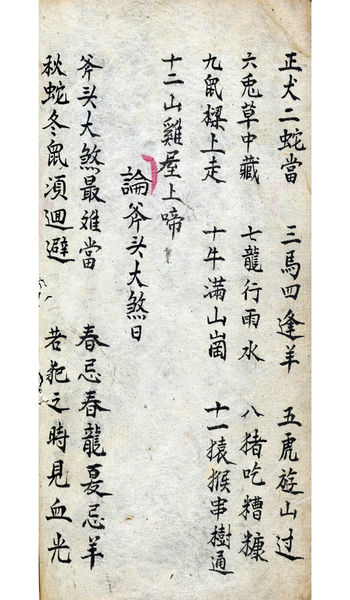 正犬二蛇當　三馬四逢羊　五虎遊山过
六兎草中藏　七龍行雨水　八猪吃糟糠
九鼠樑上走　十牛滿山崗　十一猿猴串樹通
十二山雞屋上啼
論斧头大煞日
斧头大煞最难當　春忌春龍夏忌羊
秋蛇冬鼠須迴避　若犯之時見血光